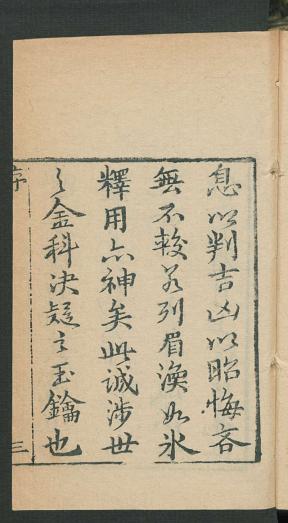 息以判吉凶以昭悔吝
無不較若列眉渙如氷
釋用亦神矣此誠涉世
之金科决疑之玉鑰也
序
三